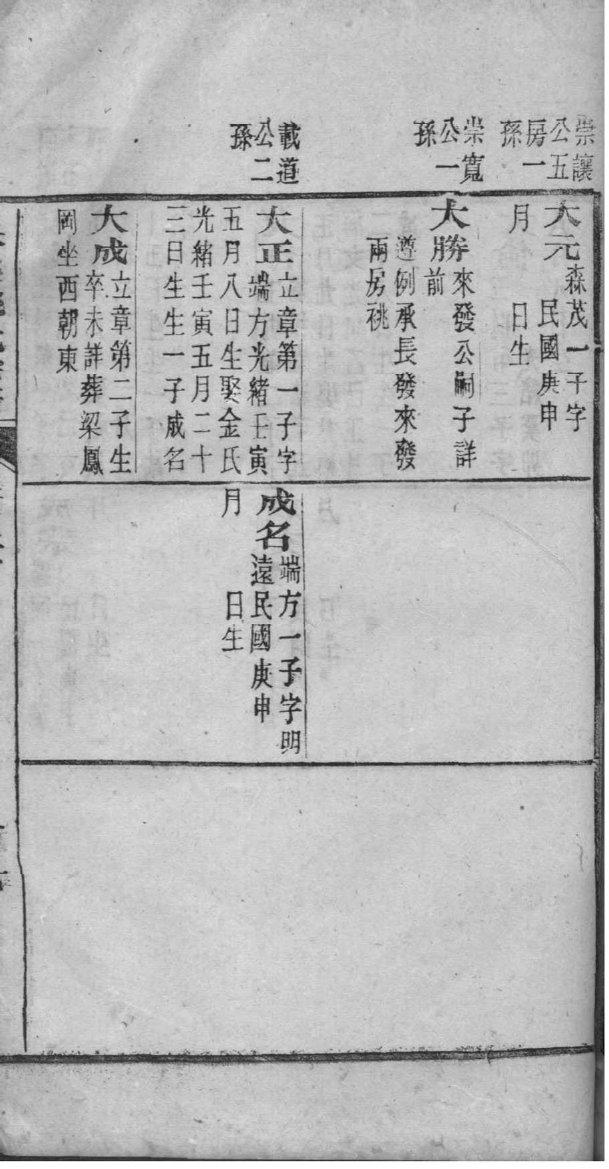 崇讓
公五
房一
孫
大元
森茂一子字
民國庚申
月　　日生
崇寬
公一
孫
大勝
來發公嗣子詳
前
遵例承長發來發
兩房祧
載道
公二
孫
大正
立章第一子字
端方光緒壬寅
五月八日生娶金氏
光緒壬寅五月二十
三日生生一子成名
大成
立章第二子生
卒未詳葬梁鳳
岡坐西朝東
成名
端方一子字明
遠民國庚申
月　　日生